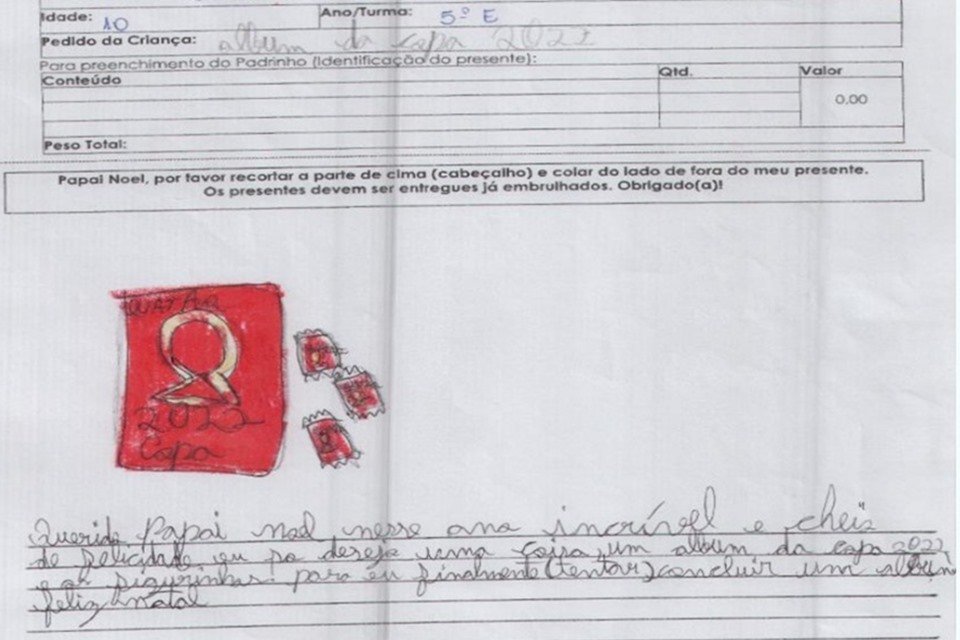 Idade: 10 Ano/Turma: 5º E
Pedido da Criança: album da copa 2022
Para preenchimento do Padrinho (Identificação do presente):
Conteúdo Qtd. Valor
0,00
Peso Total:
Papai Noel, por favor recortar a parte de cima (cabeçalho) e colar do lado de fora do meu presente.
Os presentes devem ser entregues já embrulhados. Obrigado(a)!
2022
Copa
Querido Papai noel nesse ano incrível e cheio
de felicidade eu so desejo uma coisa, um album da copa 2022,
e as figurinhas para eu finalmente (tentar) concluir um album
feliz natal